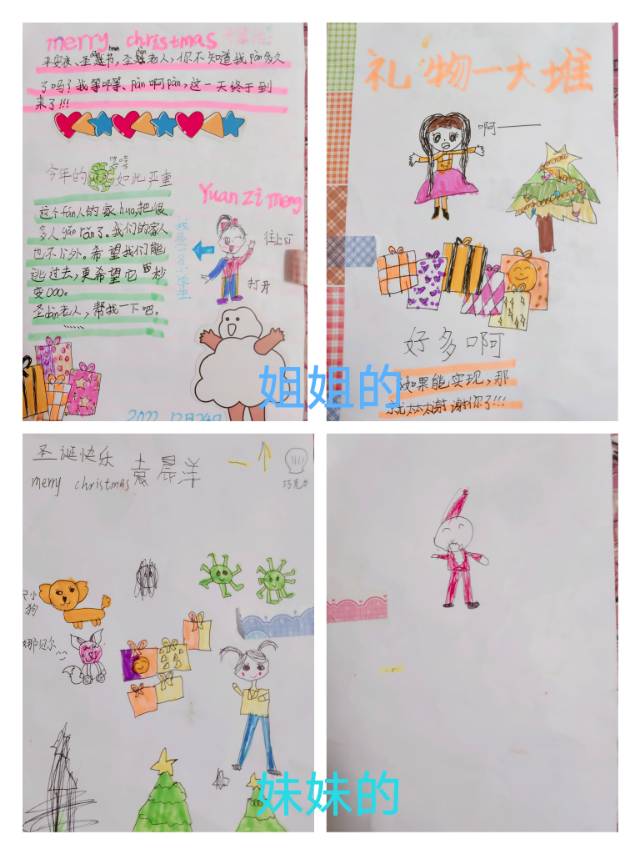 merry christmas
平安夜、圣诞节,圣诞老人,你不知道我pàn多久
了吗?我等呀等、pàn啊pàn,这一天终于到
来了!!!
今年的
如此严重
这个fán人的家huo,把很
多人gǎn rǎn了。我们的家人
也不例外。希望我们能
逃过去,更希望它
变000。
圣dàn老人,帮我一下吧。
......
Yuan Zi meng
往上
打开
2022 12月24日
礼物一大堆
啊——
好多啊
如果能实现,那
就太太谢谢你了!!!
姐姐的
圣诞快乐
merry christmas
袁晨洋
巧克力
小狗
娜贝尔
妹妹的